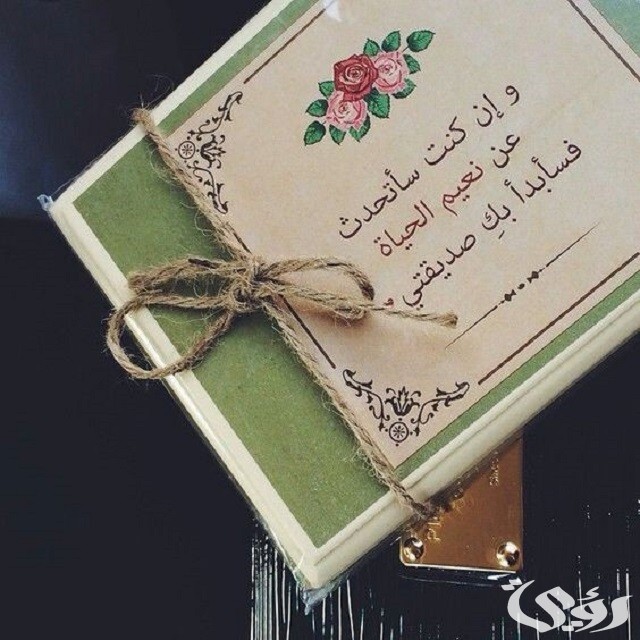 و إن كنت سأتحدث
عن نعيم الحياة
فسأبدأ بكِ صديقتي
رؤى